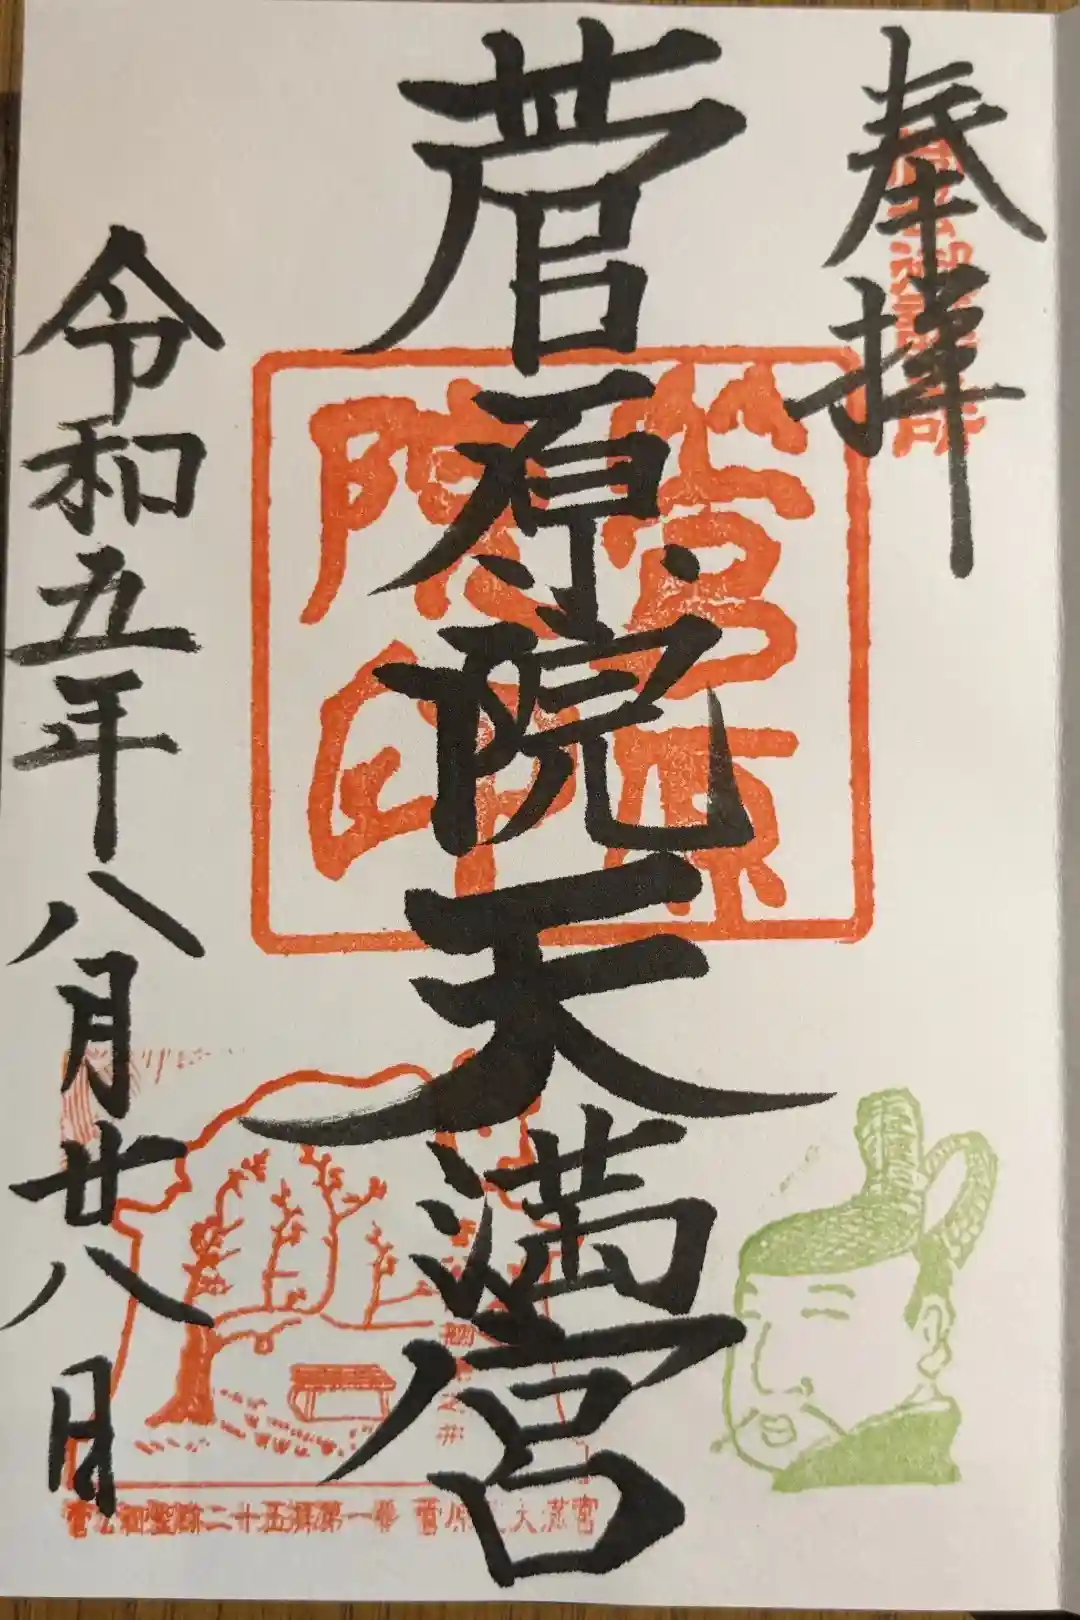 奉拝
菅原院天満宮
令和五年八月廿八日
菅原
院印
菅公御聖跡二十五拝第一番 菅原院天満宮